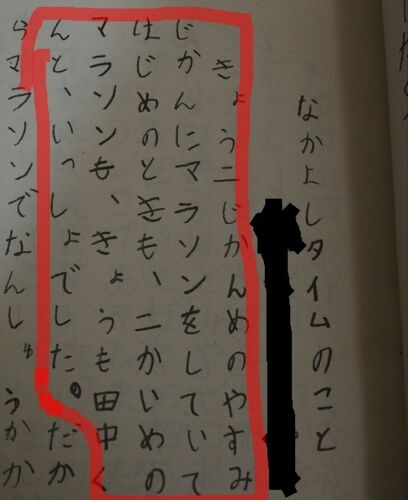 なかよしタイムのこと
きょう二じかんめのやすみ
じかんにマラソンをしていて
はじめのときも、二かいめの
マラソンも、きょうも田中く
んと、いっしょでした。だか
らマラソンでなんしゅうかか